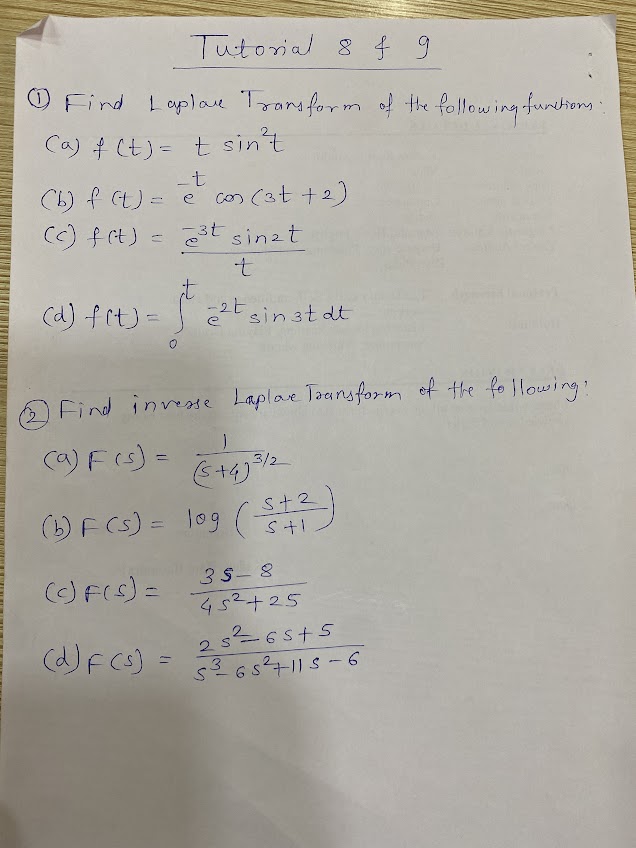 Tutorial 8 & 9
① Find Laplace Transform of the following functions:
(a) f(t) = t sin²t
(b) f(t) = e^{-t} cos(3t+2)
(c) f(t) = \frac{e^{-3t} sin2t}{t}
(d) f(t) = ∫_0^t e^{-2t} sin3t dt
② Find inverse Laplace Transform of the following:
(a) F(s) = \frac{1}{(s+4)^{3/2}}
(b) F(s) = log (\frac{s+2}{s+1})
(c) F(s) = \frac{3s-8}{4s²+25}
(d) F(s) = \frac{2s²-6s+5}{s³-6s²+11s-6}